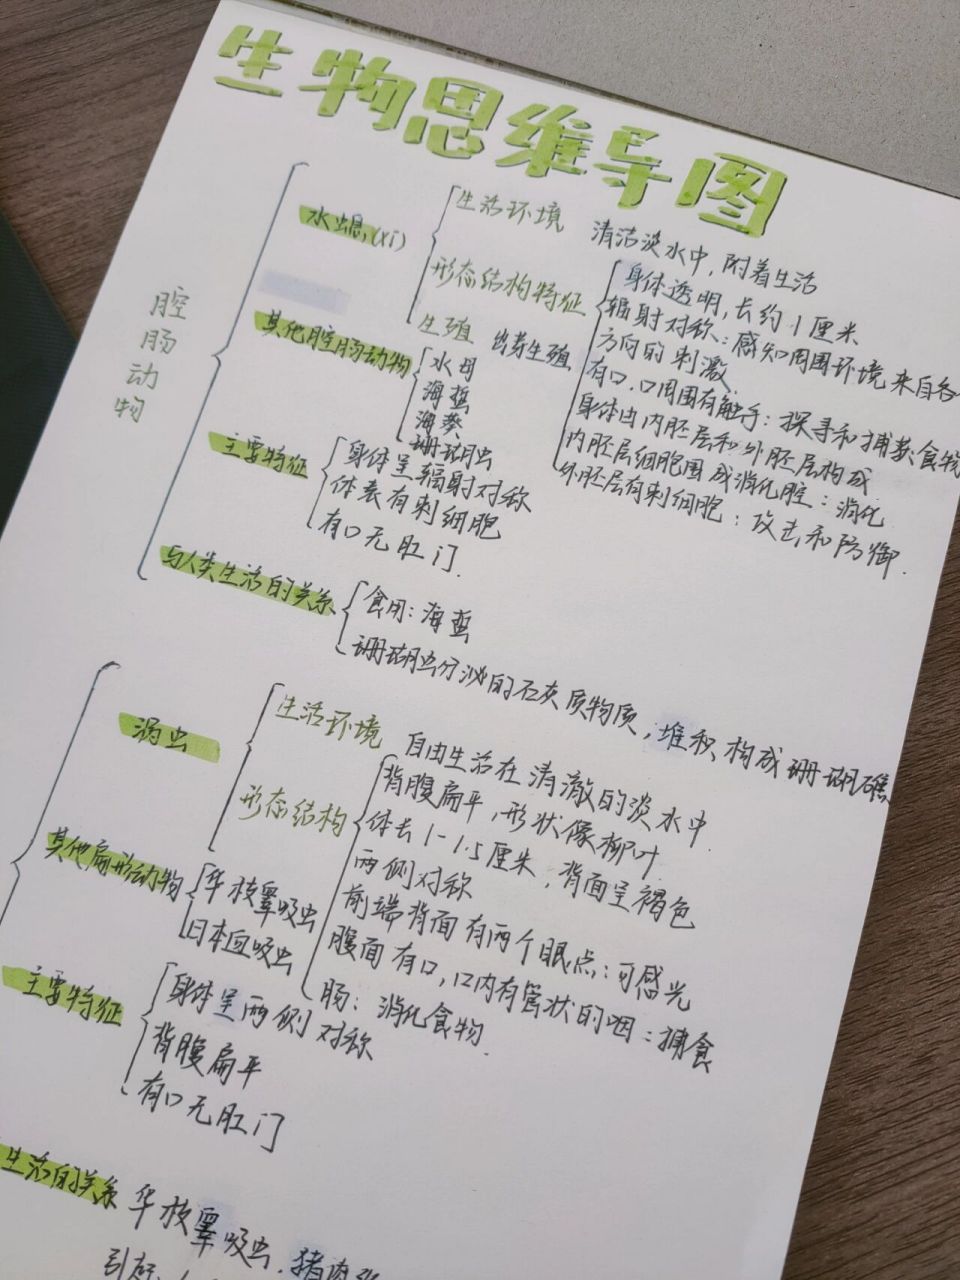 生物思维导图
腔肠动物
水螅(xi)
生活环境 清洁淡水中,附着生活
形态结构特征
身体透明,长约1厘米
辐射对称:感知周围环境来自各
方向的刺激
有口,口周围有触手:探寻和捕获食物
身体由内胚层和外胚层构成
内胚层细胞围成消化腔:消化
外胚层有刺细胞:攻击和防御.
生殖 出芽生殖
其他腔肠动物
水母
海蜇
海葵
珊瑚虫
主要特征
身体呈辐射对称
体表有刺细胞
有口无肛门.
与人类生活的关系
食用:海蜇
珊瑚虫分泌的石灰质物质,堆积构成珊瑚礁
涡虫
生活环境 自由生活在清澈的淡水中.
形态结构
背腹扁平,形状像柳叶
体长1-1.5厘米,背面呈褐色
两侧对称
前端背面有两个眼点:可感光
腹面有口,口内有管状的咽:捕食
肠:消化食物.
其他扁形动物
华枝睾吸虫
日本血吸虫
主要特征
身体呈两侧对称
背腹扁平
有口无肛门
生活的关系 华枝睾吸虫,猪肉